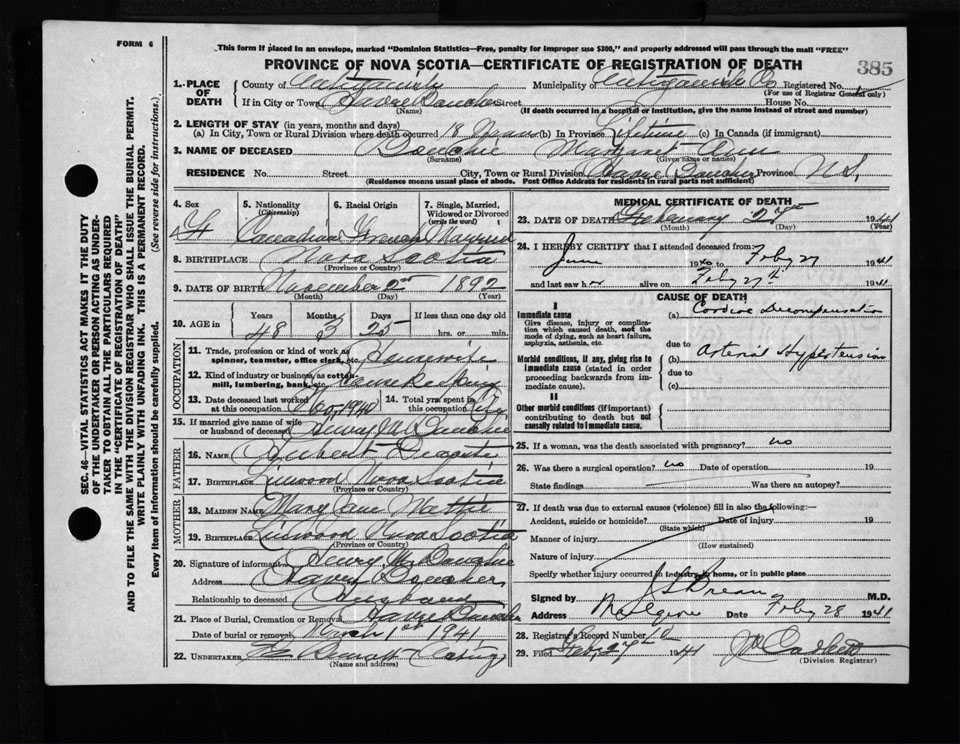 FORM 6
This form if placed in an envelope, marked "Dominion Statistics—Free, penalty for improper use $300," and properly addressed will pass through the mail "FREE"
PROVINCE OF NOVA SCOTIA—CERTIFICATE OF REGISTRATION OF DEATH
385
1. PLACE OF DEATH County of Antigonish Municipality of Antigonish Co Registered No.
(For use of Registrar General only)
If in City or Town Havre Boucher Street House No.
(Name) (If death occurred in a hospital or institution, give the name instead of street and number)
2. LENGTH OF STAY (in years, months and days)
(a) In City, Town or Rural Division where death occurred 18 Years (b) In Province Lifetime (c) In Canada (if immigrant)
3. NAME OF DECEASED Bouchie Margaret Ann
(Surname) (Given name or names)
RESIDENCE No. Street City, Town or Rural Division Havre Boucher Province N.S.
(Residence means usual place of abode. Post Office Address for residents in rural parts not sufficient)
4. Sex 5. Nationality (Citizenship) 6. Racial Origin 7. Single, Married, Widowed or Divorced (write the word)
F Canadian French Married
8. BIRTHPLACE Nova Scotia
(Province or Country)
9. DATE OF BIRTH November 2 1892
(Month) (Day) (Year)
10. AGE in Years Months Days If less than one day old
48 3 25 hrs. or min.
OCCUPATION
11. Trade, profession or kind of work as spinner, teamster, office clerk, etc. Housewife
12. Kind of industry or business, as cotton-mill, lumbering, bank, etc. House Keeping
13. Date deceased last worked at this occupation Nov 1940 14. Total yrs. spent in this occupation
15. If married give name of wife or husband of deceased Henry W Bouchie
FATHER
16. Name Hubert Decoste
17. Birthplace Linwood Nova Scotia
(Province or Country)
MOTHER
18. Maiden Name Mary Jane Mattie
19. Birthplace Linwood Nova Scotia
(Province or Country)
20. Signature of informant Henry W Bouchie
Address Havre Boucher
Relationship to deceased Husband
21. Place of Burial, Cremation or Removal Havre Boucher
Date of burial or removal March 1st 1941
22. UNDERTAKER
(Name and address)
MEDICAL CERTIFICATE OF DEATH
23. DATE OF DEATH February 27th 1941
(Month) (Day) (Year)
24. I HEREBY CERTIFY that I attended deceased from
June 1940 to Feby 27 1941
and last saw her alive on Feby 27th 1941
CAUSE OF DEATH
I
Immediate cause
Give disease, injury or complication which caused death, not the mode of dying, such as heart failure, asphyxia, asthenia, etc.
(a) Cardiac Decompensation
due to
Morbid conditions, if any, giving rise to immediate cause (stated in order proceeding backwards from immediate cause).
(b) Arterial Hypertension
due to
(c)
II
Other morbid conditions (if important) contributing to death but not causally related to immediate cause.
25. If a woman, was the death associated with pregnancy? no
26. Was there a surgical operation? no Date of operation 19
State findings Was there an autopsy?
27. If death was due to external causes (violence) fill in also the following:—
Accident, suicide or homicide? Date of injury 19
(State which)
Manner of injury
(How sustained)
Nature of injury
Specify whether injury occurred in industry, home, or in public place
Signed by M.D.
Address Mulgrave Date Feby 28 1941
28. Registrar's Record Number
29. Filed Feb. 27 1941
(Division Registrar)
SEC. 46—VITAL STATISTICS ACT MAKES IT THE DUTY
OF THE UNDERTAKER OR PERSON ACTING AS UNDERTAKER TO OBTAIN ALL THE PARTICULARS REQUIRED
IN THE "CERTIFICATE OF REGISTRATION OF DEATH"
AND TO FILE THE SAME WITH THE DIVISION REGISTRAR WHO SHALL ISSUE THE BURIAL PERMIT.
WRITE PLAINLY WITH UNFADING INK. THIS IS A PERMANENT RECORD.
Every item of information should be carefully supplied. (See reverse side for instructions.)